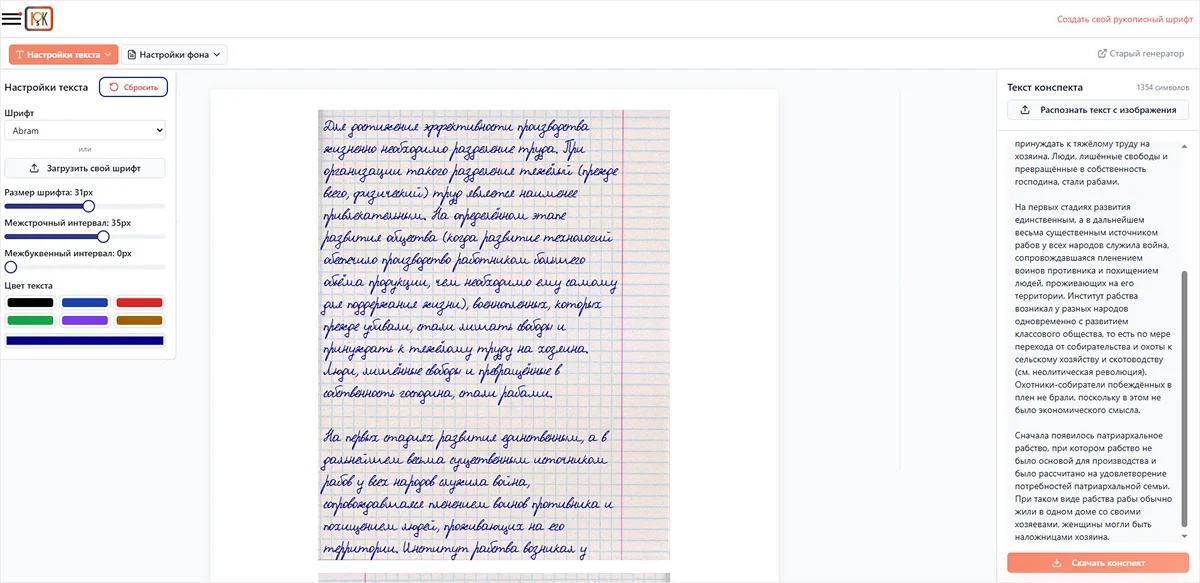 ЮК
Создать свой рукописный шрифт
Настройки текста
Настройки фона
Старый генератор
Настройки текста
Сбросить
Шрифт
Abram
или
Загрузить свой шрифт
Размер шрифта: 31px
Межстрочный интервал: 35px
Межбуквенный интервал: 0px
Цвет текста
Для достижения эффективности производства
жизненно необходимо разделение труда. При
организации такого разделения тяжёлый (прежде
всего, физический) труд является наименее
привлекательным. На определённом этапе
развития общества (когда развитие технологий
обеспечило производство работником большего
объёма продукции, чем необходимо ему самому
для поддержания жизни), военнопленных, которых
прежде убивали, стали лишать свободы и
принуждать к тяжёлому труду на хозяина.
Люди, лишённые свободы и превращённые в
собственность господина, стали рабами.
На первых стадиях развития единственным, а в
дальнейшем весьма существенным источником
рабов у всех народов служила война,
сопровождавшаяся пленением воинов противника и
похищением людей, проживающих на его
территории. Институт рабства возникал у
Текст конспекта
1354 символов
Распознать текст с изображения
принуждать к тяжёлому труду на
хозяина. Люди, лишённые свободы и
превращённые в собственность
господина, стали рабами.
На первых стадиях развития
единственным, а в дальнейшем
весьма существенным источником
рабов у всех народов служила война,
сопровождавшаяся пленением
воинов противника и похищением
людей, проживающих на его
территории. Институт рабства
возникал у разных народов
одновременно с развитием
классового общества, то есть по мере
перехода от собирательства и охоты к
сельскому хозяйству и скотоводству
(см. неолитическая революция).
Охотники-собиратели побеждённых в
плен не брали, поскольку в этом не
было экономического смысла.
Сначала появилось патриархальное
рабство, при котором рабство не
было основой для производства и
было рассчитано на удовлетворение
потребностей патриархальной семьи.
При таком виде рабства рабы обычно
жили в одном доме со своими
хозяевами, женщины могли быть
наложницами хозяина.
Скачать конспект